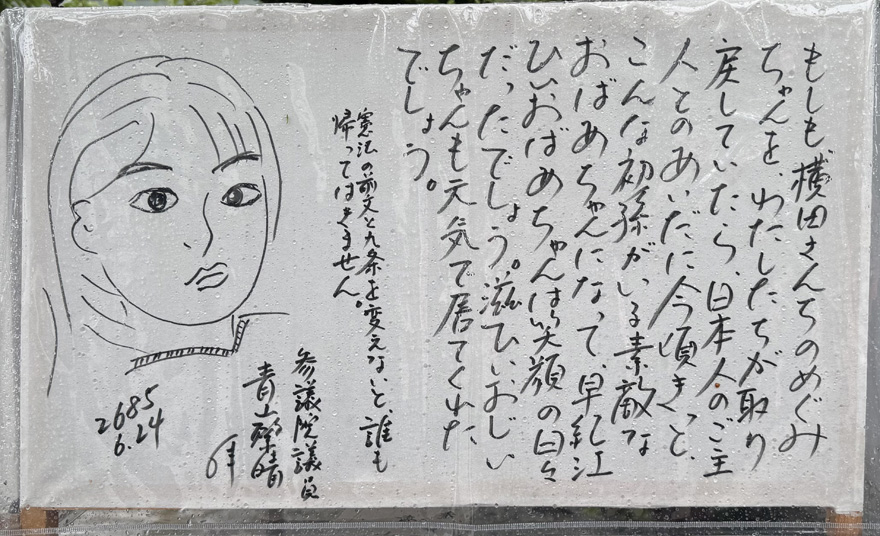 もしも、横田さんちのめぐみ
ちゃんを、わたしたちが取り
戻していたら、日本人のご主
人とのあいだに今頃きっと、
こんな初孫がいる素敵な
おばあちゃんになって、早紀江
ひいおばあちゃんは笑顔の日々
だったでしょう。滋ひいおじい
ちゃんも元気で居てくれた
でしょう。
憲法の前文と九条を変えないと、誰も
帰ってはきません。
参議院議員
青山繁晴
拝
2685
6.24